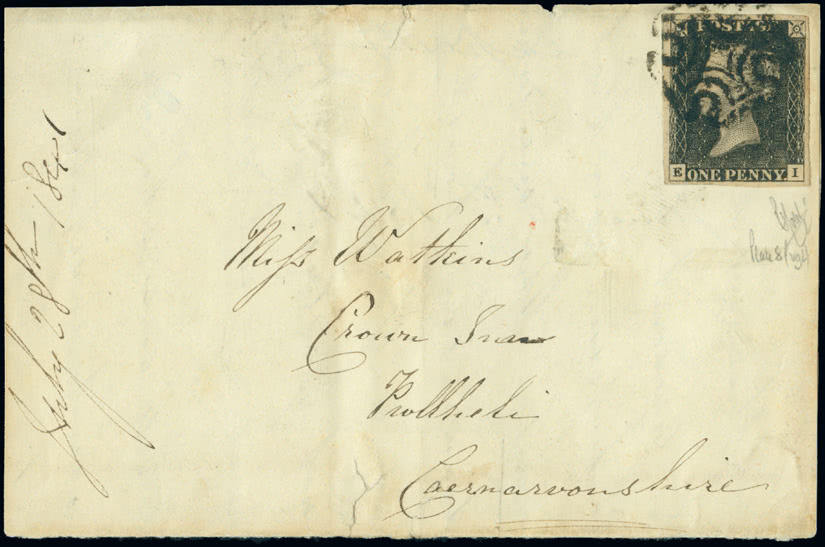 POSTAGE
E ONE PENNY I
July 28th 1841
Miss Watkins
Crown Inn
Pwllheli
Caernarvonshire
Plate 8